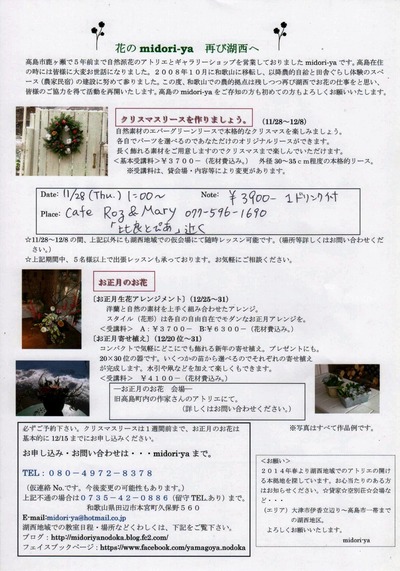 花の midori-ya　再び湖西へ
高島市鹿ヶ瀬で５年前まで自然派花のアトリエとギャラリーショップを営業しておりました midori-ya です。高島在住
の時には皆様に大変お世話になりました。２００８年１０月に和歌山に移転し、以降農的自給と田舎ぐらし体験のスペ
ース（農家民宿）の建設に努めて参りました。この度、和歌山での農的拠点は残しつつ再び湖西でお花の仕事をと思い、
皆様のご協力を得て活動を再開いたします。高島の midori-ya をご存知の方も初めての方もよろしくお願いいたします。
クリスマスリースを作りましょう。　（11/28～12/8）
自然素材のエバーグリーンリースで本格的なクリスマスを楽しみましょう。
各自でパーツを選べるのであなただけのオリジナルリースができます。
長く飾れる素材をご用意しますのでクリスマスまで楽しんでいただけます。
＜基本受講料＞￥３７００－（花材費込み。）　外径 30～35ｃｍ程度の本格的リース。
※受講料は、貸会場・内容等により変更があります。
Date: 11/28 (Thu.) 1:00～　Note: ￥3900- 1ドリンク付
Place: Cafe Roz & Mary 077-596-1690
「比良とぴあ」近く
☆11/28～12/8 の間、上記以外にも湖西地域での仮会場にて随時レッスン可能です。（場所等詳しくはお問い合わせくださ
い。）
☆上記期間中、５名様以上で出張レッスンも承っております。お気軽にご相談ください。
お正月のお花
〔お正月生花アレンジメント〕（12/25～31）
洋蘭と自然の素材を上手く組み合わせたアレンジ。
スタイル（花形）は各自の自由自在でモダンなお正月アレンジを。
＜受講料＞　A：￥３７００－　B:￥６３００－（花材費込み。）
〔お正月寄せ植え〕（12/20位～31）
コンパクトで気軽にどこにでも飾れる新年の寄せ植え。プレゼントにも。
20×30 位の器です。いくつかの苗から選べるのでそれぞれの寄せ植え
が完成します。水引や凧などを加えて楽しくもできます。
＜受講料＞　￥４１００－（花材費込み。）
―お正月のお花　会場―
旧高島町内の作家さんのアトリエにて。
（詳しくはお問い合わせください。）
必ずご予約下さい。クリスマスリースは１週間前まで、お正月のお花は
基本的に 12/15 までにお申し込みください。
お申し込み・お問い合わせは・・・midori-ya まで。
TEL：０８０－４９７２－８３７８
（仮連絡 No.です。今後変更の可能性もあります。）
上記不通の場合は０７３５－４２－０８８６（留守 TEL あり）まで。
和歌山県田辺市本宮町久保野 560
E-mail:midori-ya@hotmail.co.jp
湖西地域での教室日程・場所などくわしくは、下記をご覧下さい。
ブログ：http://midoriyanodoka.blog.fc2.com/
フェイスブックページ：https://www.facebook.com/yamagoya.nodoka
※写真はすべて作品例です。
＜お願い＞
２０１４年春より湖西地域でのアトリエの開け
る本拠地を探しています。お心当たりのある方
はお知らせください。☆貸家☆空別荘☆会場な
ど・・・
（エリア）大津市伊香立辺り～高島市一帯まで
の湖西地区。
よろしくお願いいたします。
midori-ya